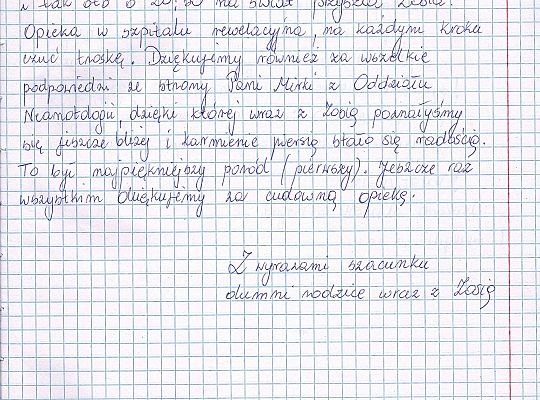 i tak oto o 20:50 na świat przyszła Zosia.
Opieka w szpitalu rewelacyjna, na każdym kroku
czuć troskę. Dziękujemy również za wszelkie
podpowiedzi ze strony Pani Mirki z Oddziału
Neonatologii, dzięki której wraz z Zosią poznałyśmy
się jeszcze bliżej i karmienie piersią stało się radością.
To był najpiękniejszy poród (pierwszy). Jeszcze raz
wszystkim dziękujemy za cudowną opiekę.
Z wyrazami szacunku
dumni rodzice wraz z Zosią